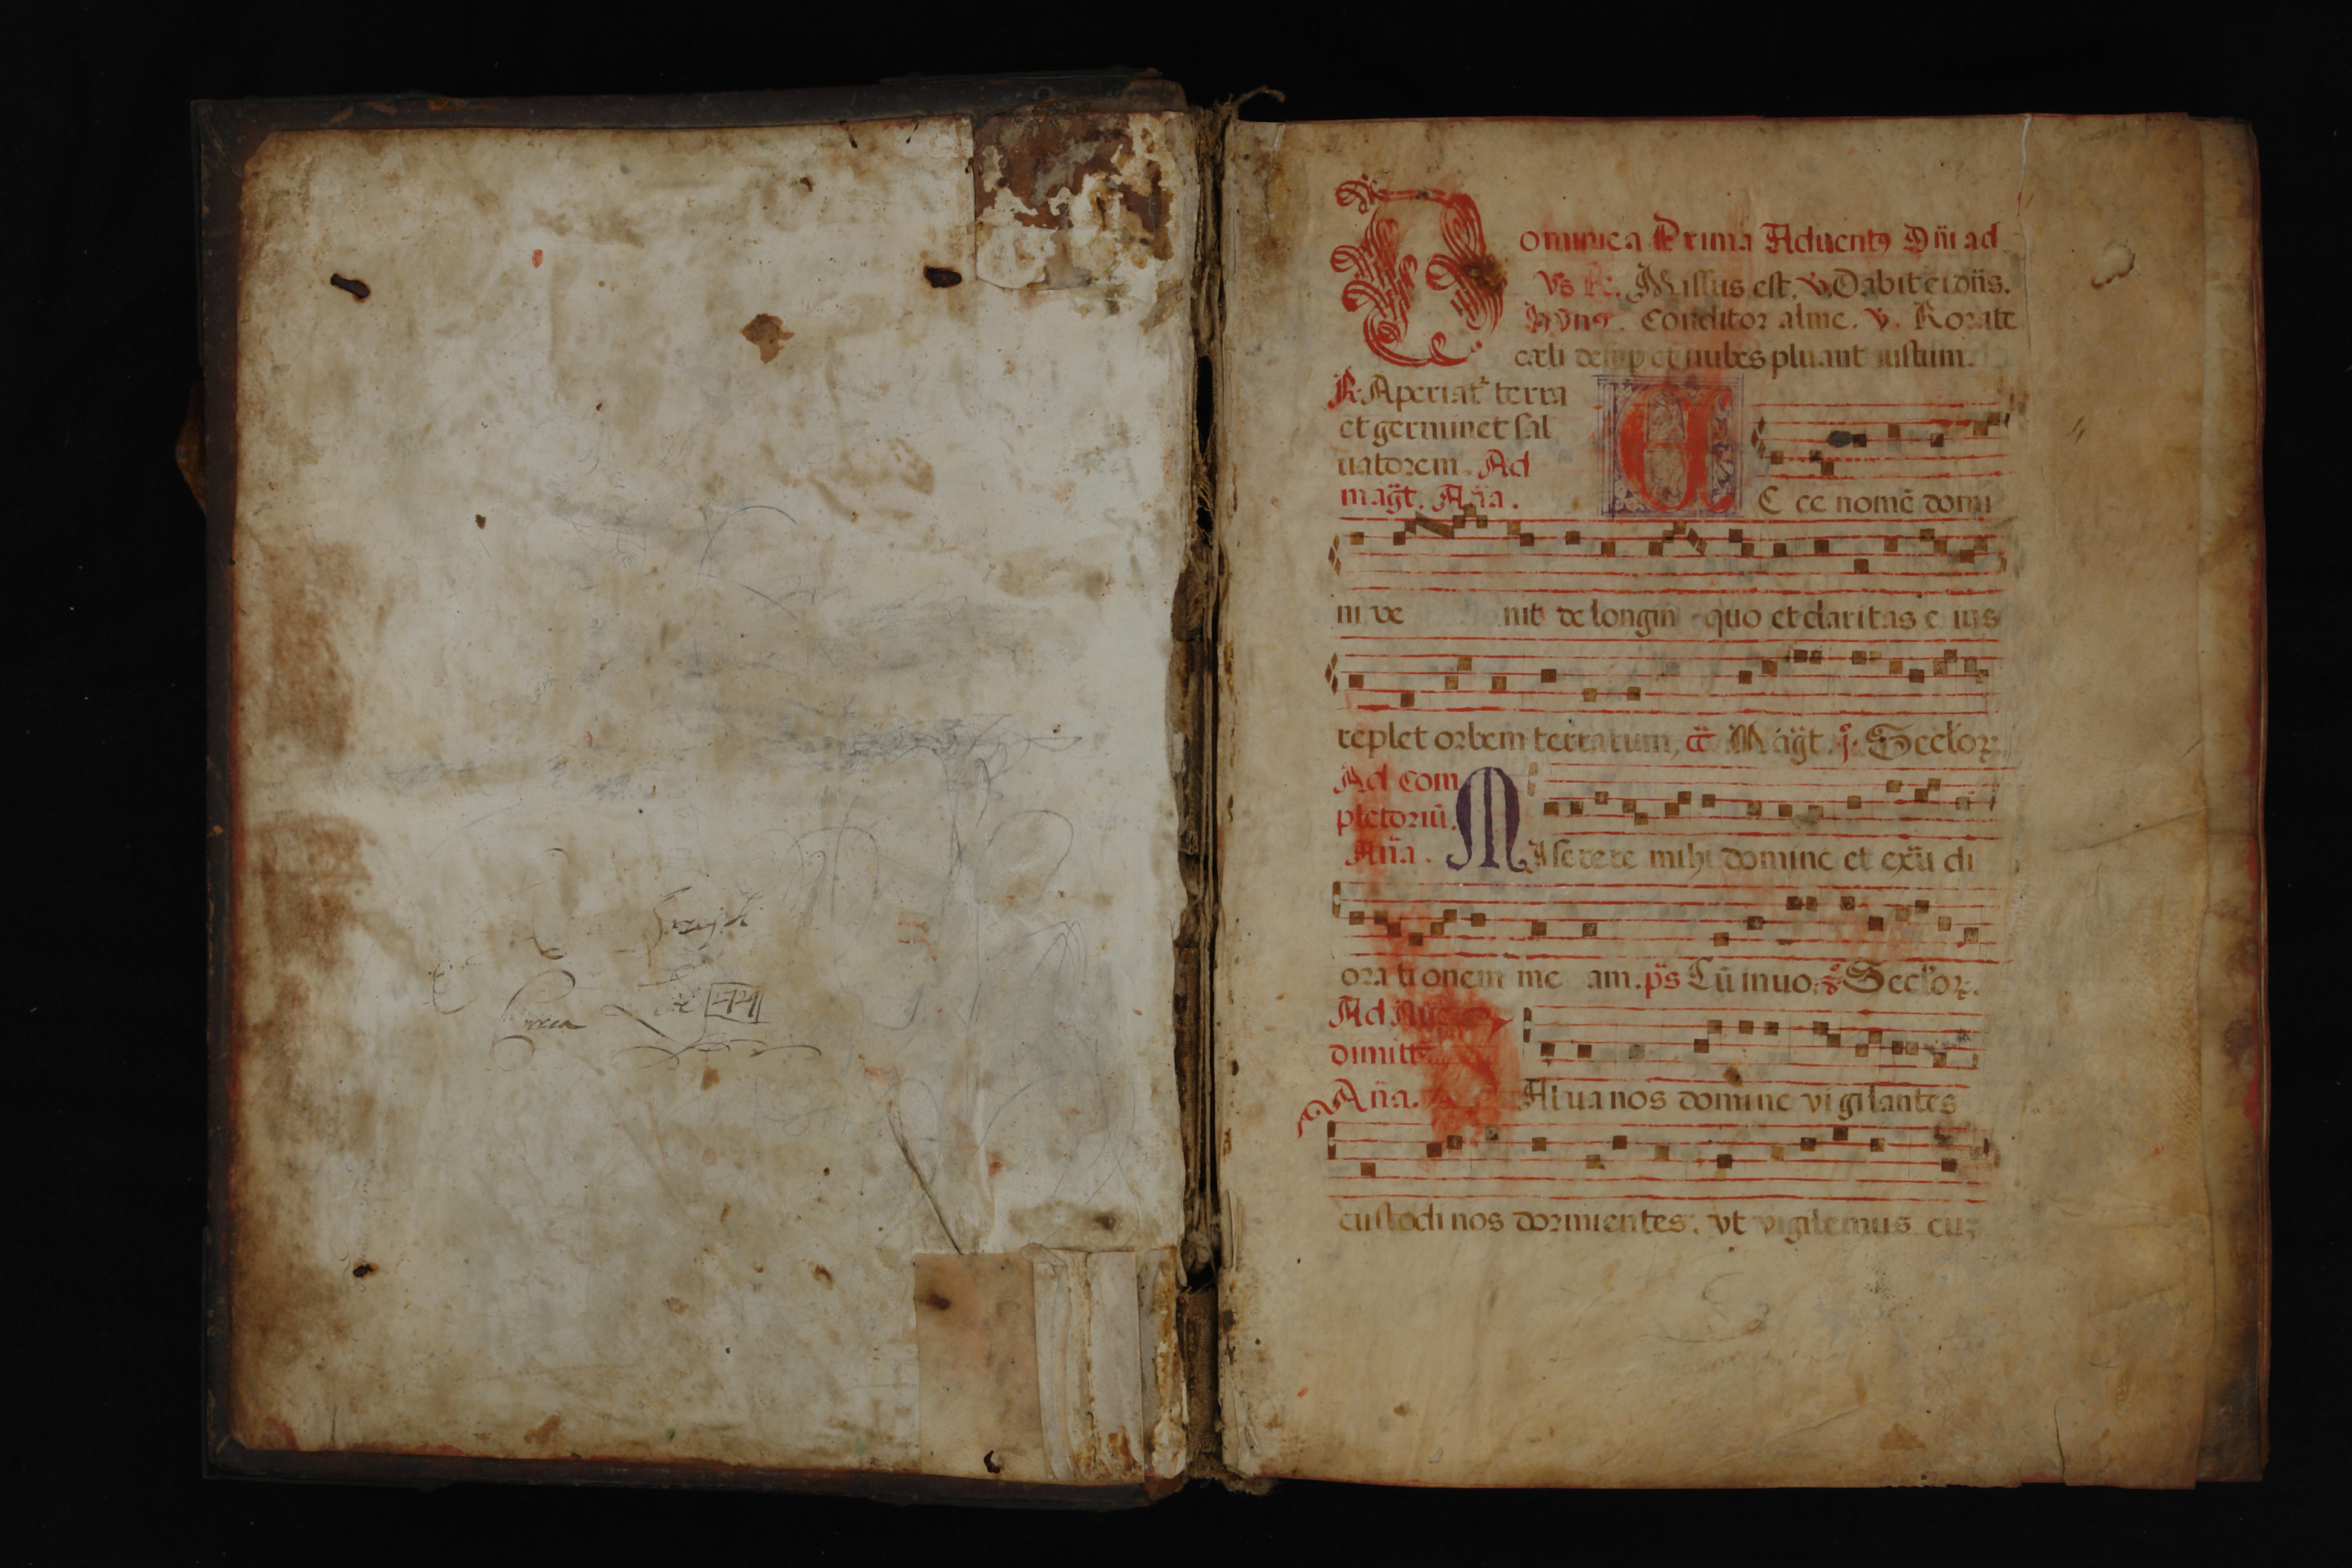 Joseph
Dominica Prima Aduentꝰ Dñi ad
Vs ℟. Missus est. ℣. Dabit ei dñs.
Hỹnꝰ. Conditor alme. ℣. Rorate
cæli desup et nubes pluant iustum.
℟. Aperiat̃ terra
et germinet sal
uatorem. Ad
mag̃t. Aña.
E ce nomẽ domi
ni ve nit de longin quo et claritas e ius
replet orbem terrarum, Mag̃t. Seclor
Ad com
pletoriũ.
Aña.
M Iserere mihi domine et exau di
ora ti onem me am. ps̃ Cũ inuo. Seclor.
Ad Nũ
dimitt
Aña.
Alua nos domine vigilantes
custodi nos dormientes. vt vigilemus cuꝫ